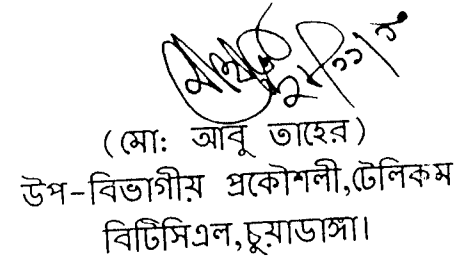 (মো: আবু তাহের)
উপ-বিভাগীয় প্রকৌশলী,টেলিকম
বিটিসিএল,চুয়াডাঙ্গা।